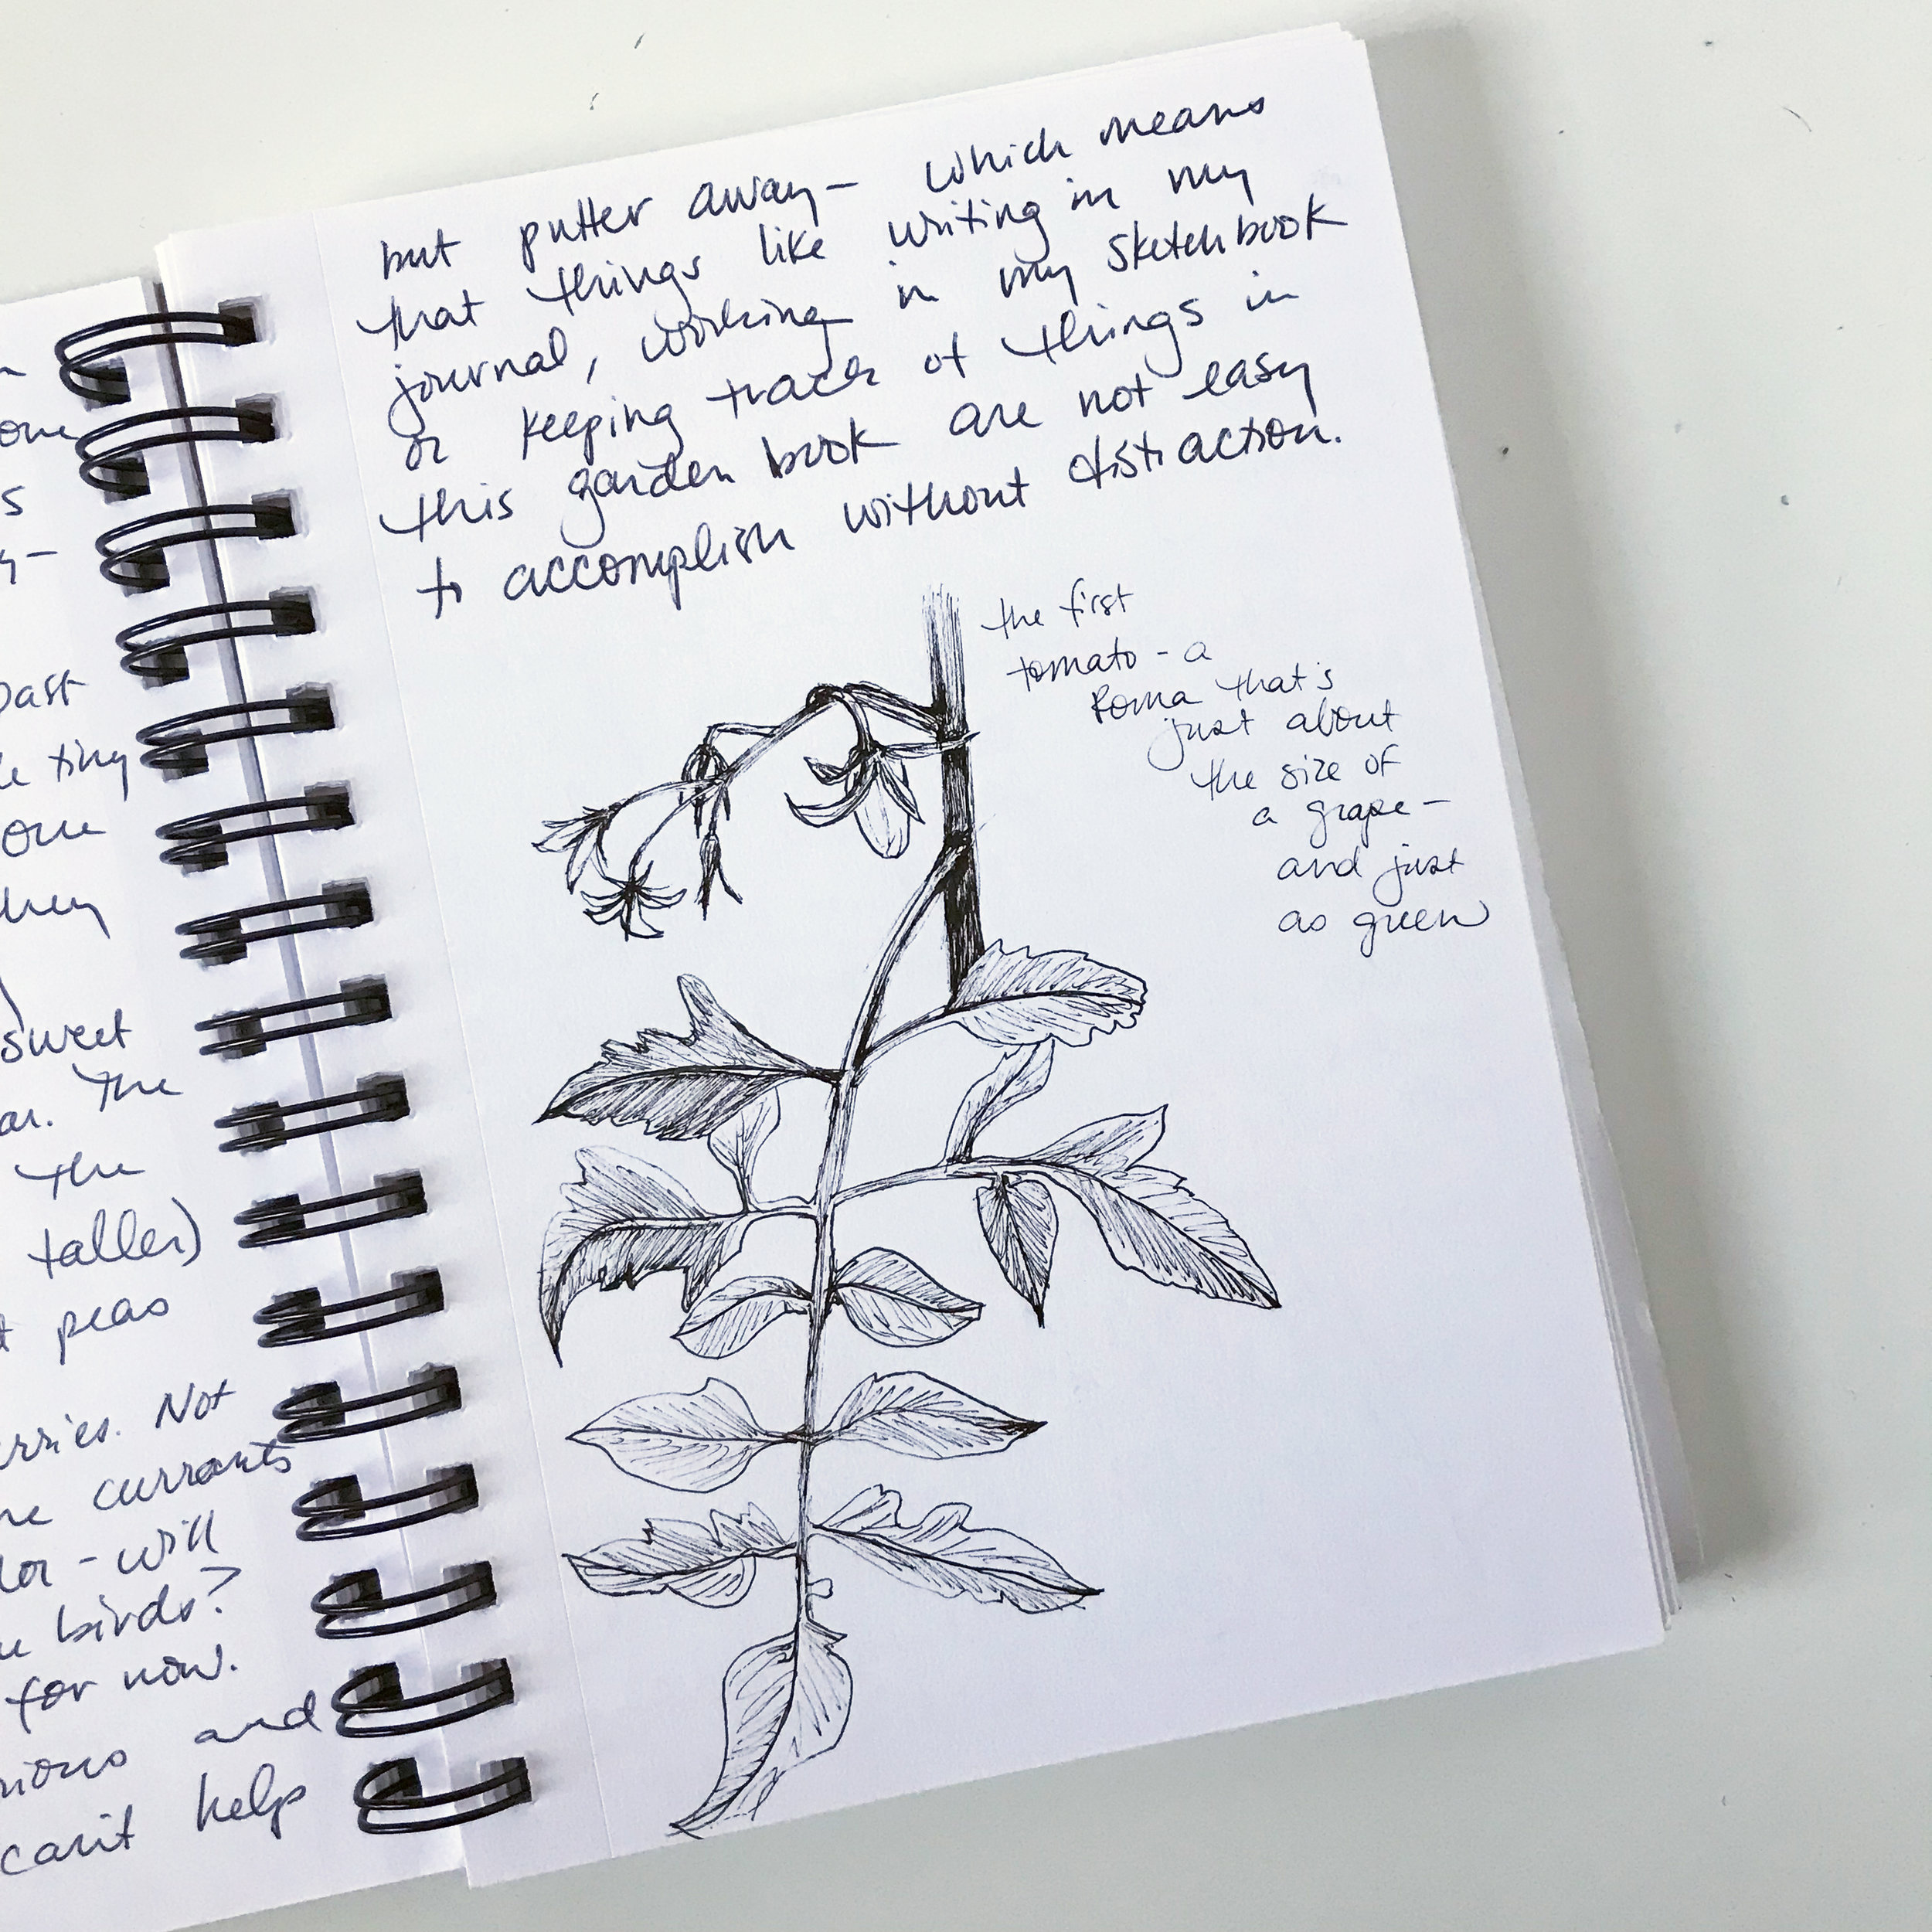 past
tiny
one
they
sweet
The
the
taller)
peas
Not
currants
- will
birds?
for now.
and
can't help
but putter away - which means
that things like writing in my
journal, working in my sketchbook
or keeping track of things in
this garden book are not easy
to accomplish without distraction.
the first
tomato - a
Roma that's
just about
the size of
a grape -
and just
as green